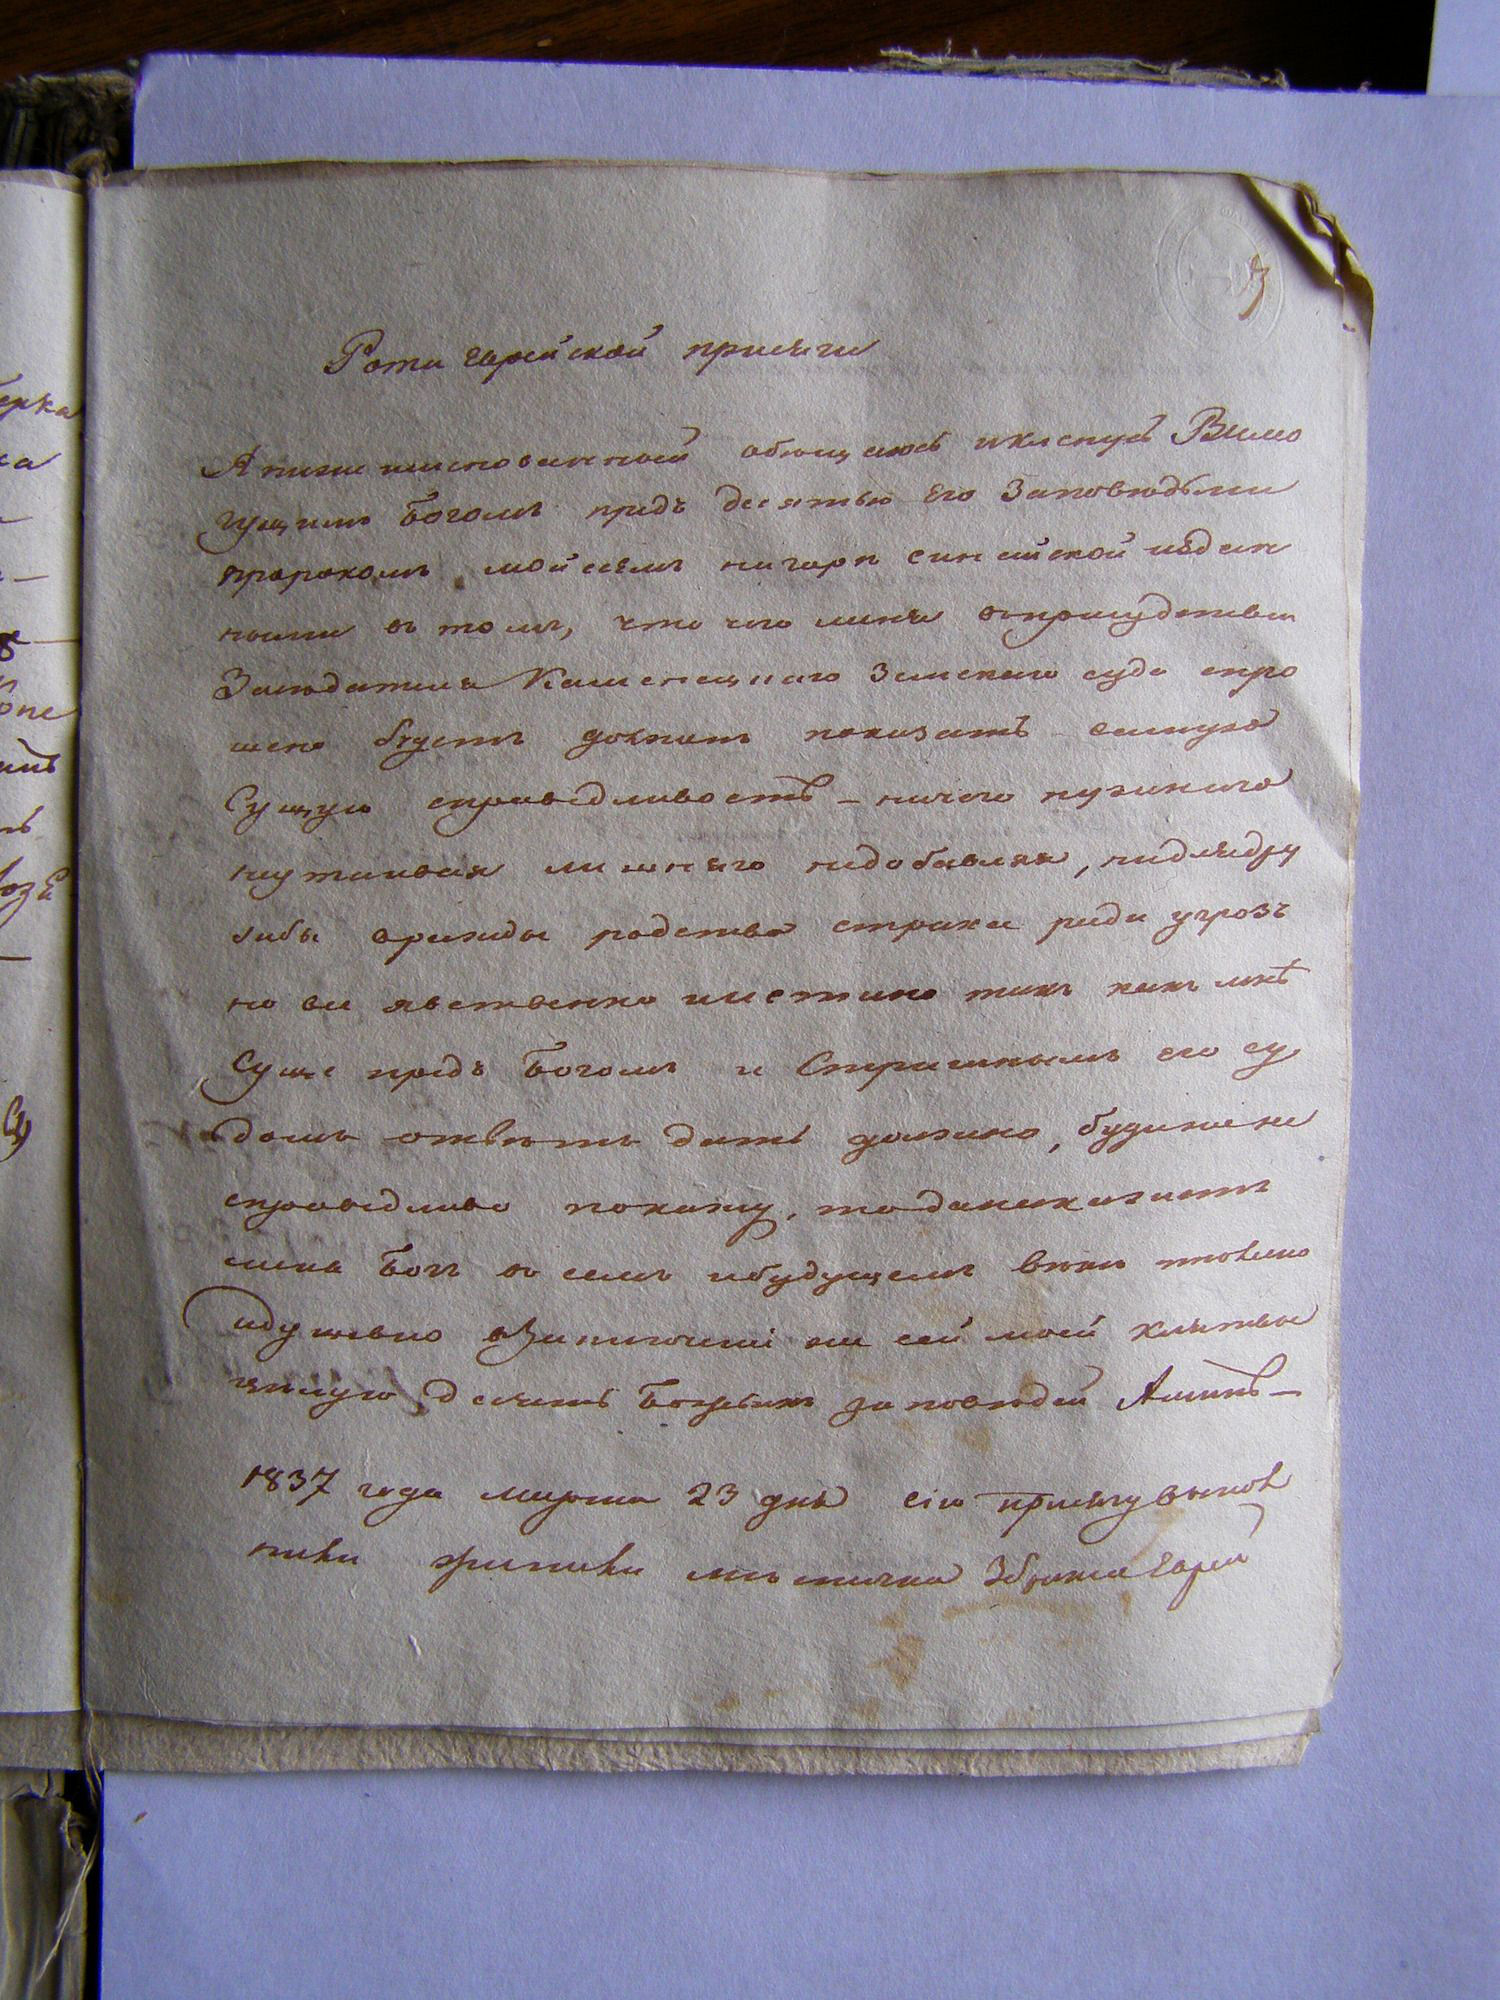 3
Рота еврейской присяги
Я ниже именованный обещаюсь и клянусь Всемо
гущимъ Богомъ предъ десятью Его Заповедьми
пророкомъ Мойсеемъ на горе синайской издан
ными въ томъ, что чего меня въ присудствии
Заседателя Каменецкаго Земскаго суда спро
шено будетъ долженъ показать самую
Сущую справедливость – ничего нужнаго
неутаивая лишняго недобавляя, не для дру
жбы вражды родства страха ради угрозъ
но все явственно и истино такъ какъ мнѣ
Суще предъ Богомъ и Страшнымъ его су
домъ ответъ дать должно, буде же не
справедливо покажу, то да накажетъ
меня Богъ въ семъ и будущемъ веке телесно
и душевно
целую десять Божьихъ заповедей Аминь –
1837 года марта 23 дня сію присягу выпол
нили жители местечка Збрижа Евреи
ерка
ка
оне